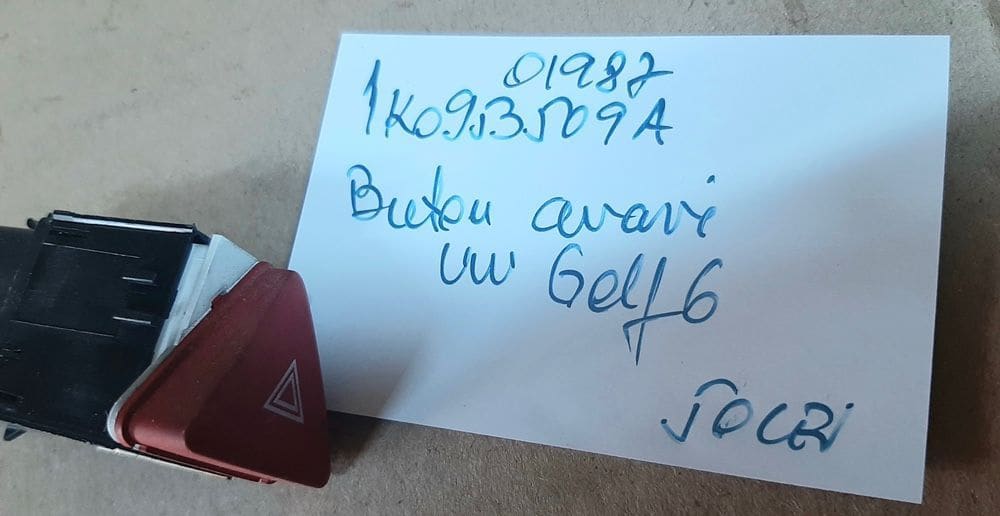 01987
1K0953509A
Buton avarii
VW Golf 6
50LEI